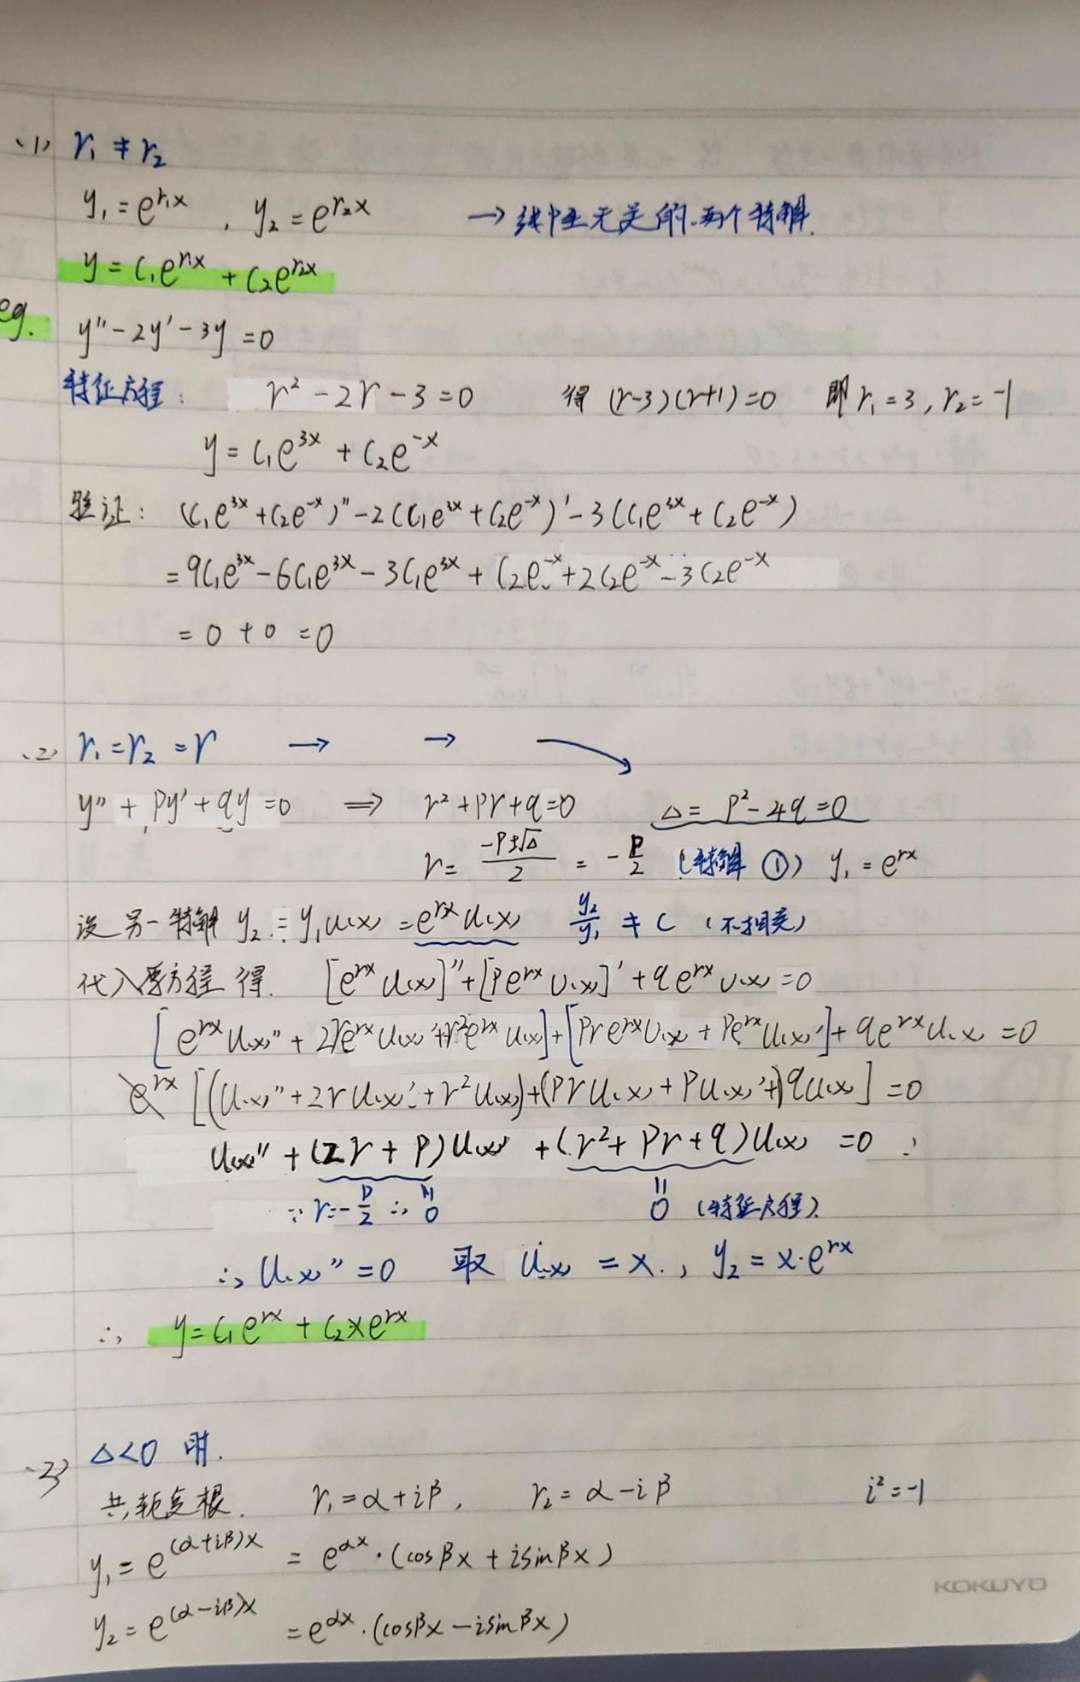 (1) r₁ ≠ r₂
y₁ = e^{r₁x} , y₂ = e^{r₂x} → 线性无关的两个特解.
y = C₁e^{r₁x} + C₂e^{r₂x}
eg. y'' - 2y' - 3y = 0
特征方程: r² - 2r - 3 = 0 得 (r-3)(r+1)=0 即 r₁ = 3, r₂ = -1
y = C₁e^{3x} + C₂e^{-x}
验证: (C₁e^{3x} + C₂e^{-x})'' - 2(C₁e^{3x} + C₂e^{-x})' - 3(C₁e^{3x} + C₂e^{-x})
= 9C₁e^{3x} - 6C₁e^{3x} - 3C₁e^{3x} + C₂e^{-x} + 2C₂e^{-x} - 3C₂e^{-x}
= 0 + 0 = 0
(2) r₁ = r₂ = r → →
y'' + Py' + qy = 0 ⇒ r² + Pr + q = 0 Δ = P² - 4q = 0
r = \frac{-P±√Δ}{2} = -\frac{P}{2} (特解 ①) y₁ = e^{rx}
设另一特解 y₂ = y₁u(x) = e^{rx}u(x) \frac{y₂}{y₁} ≠ C (不相关)
代入原方程 得. [e^{rx}u(x)]'' + [Pe^{rx}u(x)]' + qe^{rx}u(x) = 0
[e^{rx}u(x)'' + 2re^{rx}u(x)' + r²e^{rx}u(x)] + [Pre^{rx}u(x) + Pe^{rx}u(x)'] + qe^{rx}u(x) = 0
e^{rx}[(u(x)'' + 2ru(x)' + r²u(x)) + (Pru(x) + Pu(x)'+) qu(x)] = 0
u(x)'' + (2r + P)u(x)' + (r² + Pr + q)u(x) = 0
∵ r = -\frac{P}{2} ∴ 0 0 (特征方程)
∴ u(x)'' = 0 取 u(x) = x , y₂ = x·e^{rx}
∴ y = C₁e^{rx} + C₂xe^{rx}
(3) Δ<0 时.
共轭复根. r₁ = α + iβ , r₂ = α - iβ i² = -1
y₁ = e^{(α+iβ)x} = e^{αx}·(cosβx + isinβx)
y₂ = e^{(α-iβ)x} = e^{αx}·(cosβx - isinβx)
KOKUYO